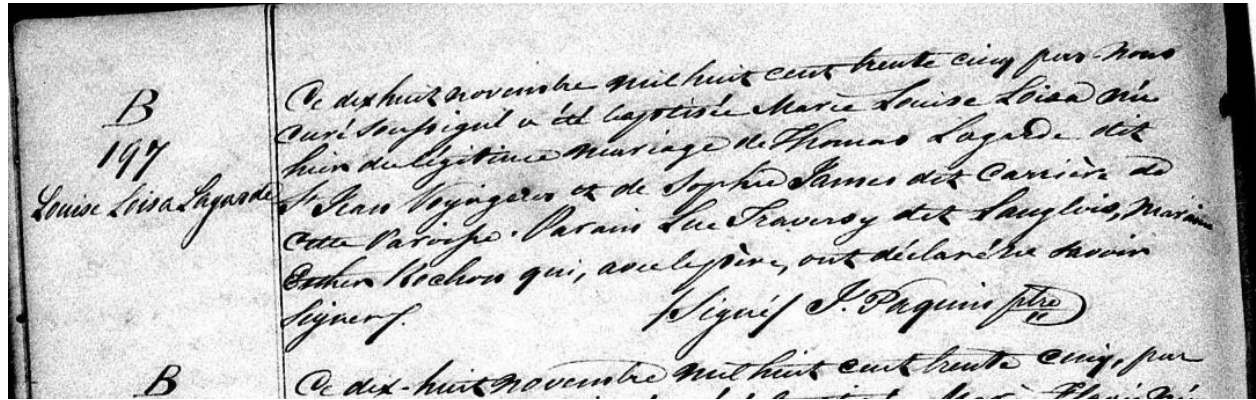 B
197
Louise Loisa Lagarde
Ce dix huit novembre mil huit cent trente cinq par nous
curé soussigné a été baptisée Marie Louise Loisa née
hier du légitime mariage de Thomas Lagarde dit
St Jean Voyageur et de Sophie James dit Carrière de
cette Paroisse. Parain Luc Traversy dit Langlois, Maraine
Esther Rochon qui, avec le père, ont déclaré ne savoir
signer.
(Signé) J. Paquin ptre
B
Ce dix-huit novembre mil huit cent trente cinq, par
Marie